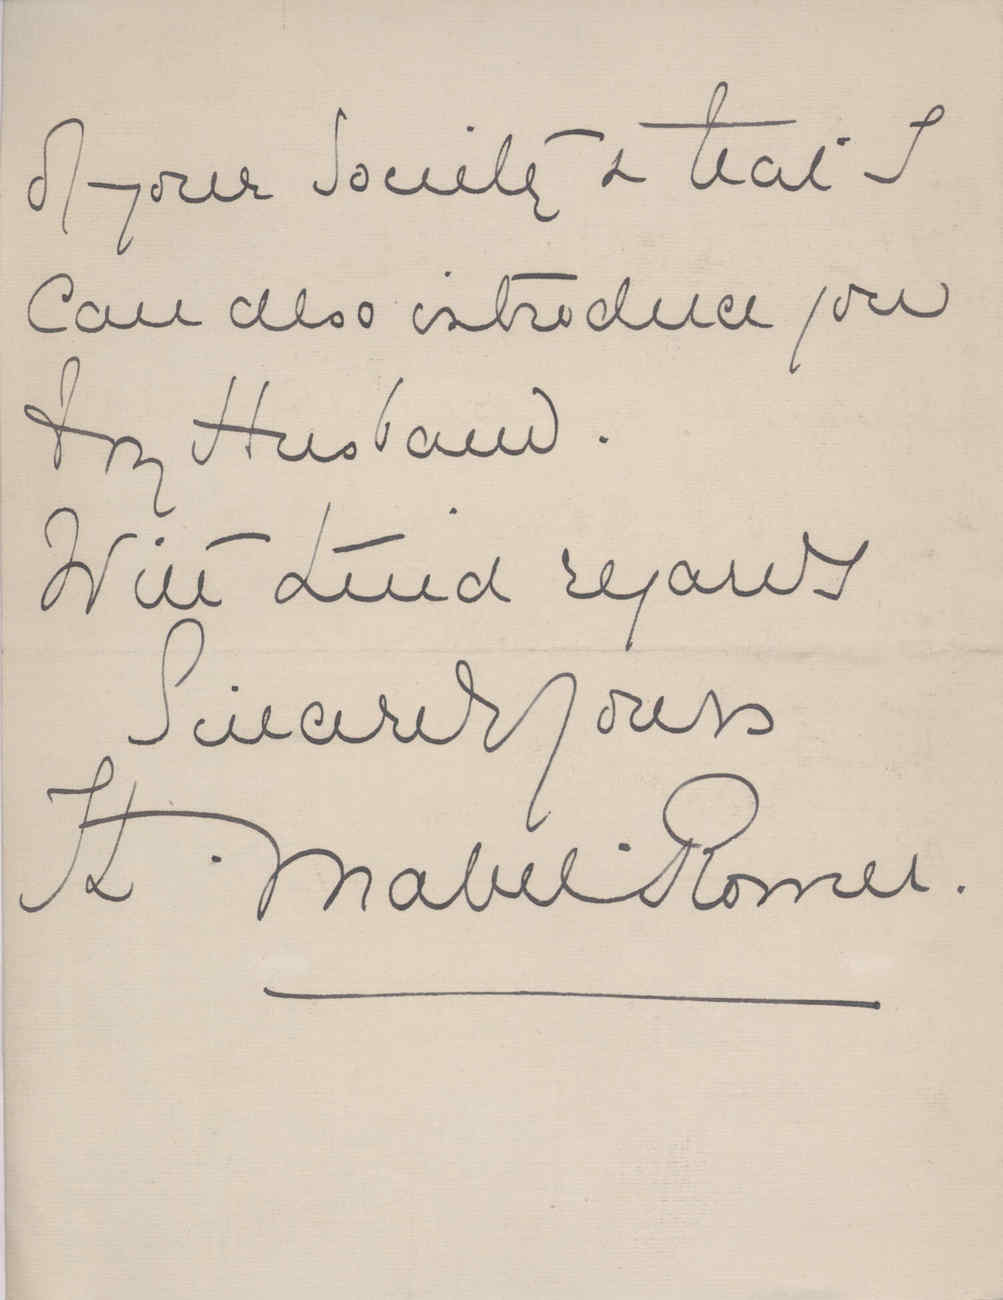 of your Society & that I
Can also introduce you
to my Husband.
With kind regards
Sincerely yours
H. Mabel